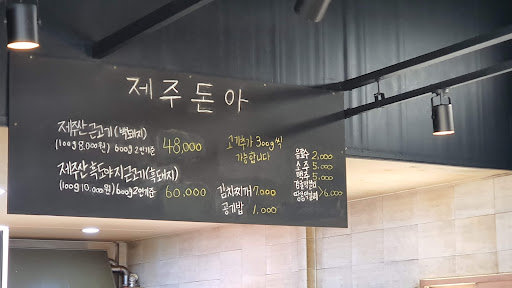 제주돈아
제주산 근고기(백돼지)
(100g 8,000원) 600g 2인기준 48,000
제주산 흑도야지근고기(흑돼지)
(100g 10,000원) 600g 2인기준 60,000
고기추가 300g씩
가능합니다
김치찌개 7,000
공기밥 1,000
음료수 2,000
소주 5,000
맥주 5,000
6,000